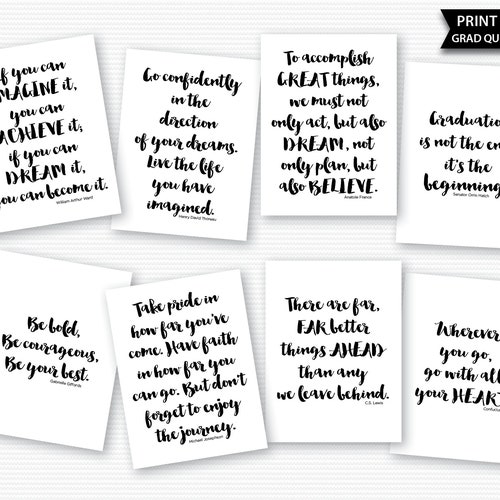 PRINT
GRAD QU
If you can
IMAGINE it,
you can
ACHIEVE it;
if you can
DREAM it,
you can become it.
William Arthur Ward
Go confidently
in the
direction
of your dreams.
Live the life
you have
imagined.
Henry David Thoreau
To accomplish
GREAT things,
we must not
only act, but also
DREAM, not
only plan, but
also BELIEVE.
Anatole France
Graduation
is not the en
it's the
beginning
Senator Orrin Hatch
Be bold,
Be courageous,
Be your best.
Gabrielle Giffords
Take pride in
how far you've
come. Have faith
in how far you
can go. But don't
forget to enjoy
the journey.
Michael Josephson
There are far,
FAR better
things AHEAD
than any
we leave behind.
C.S. Lewis
Wherever
you go,
go with all
your HEART
Confucius